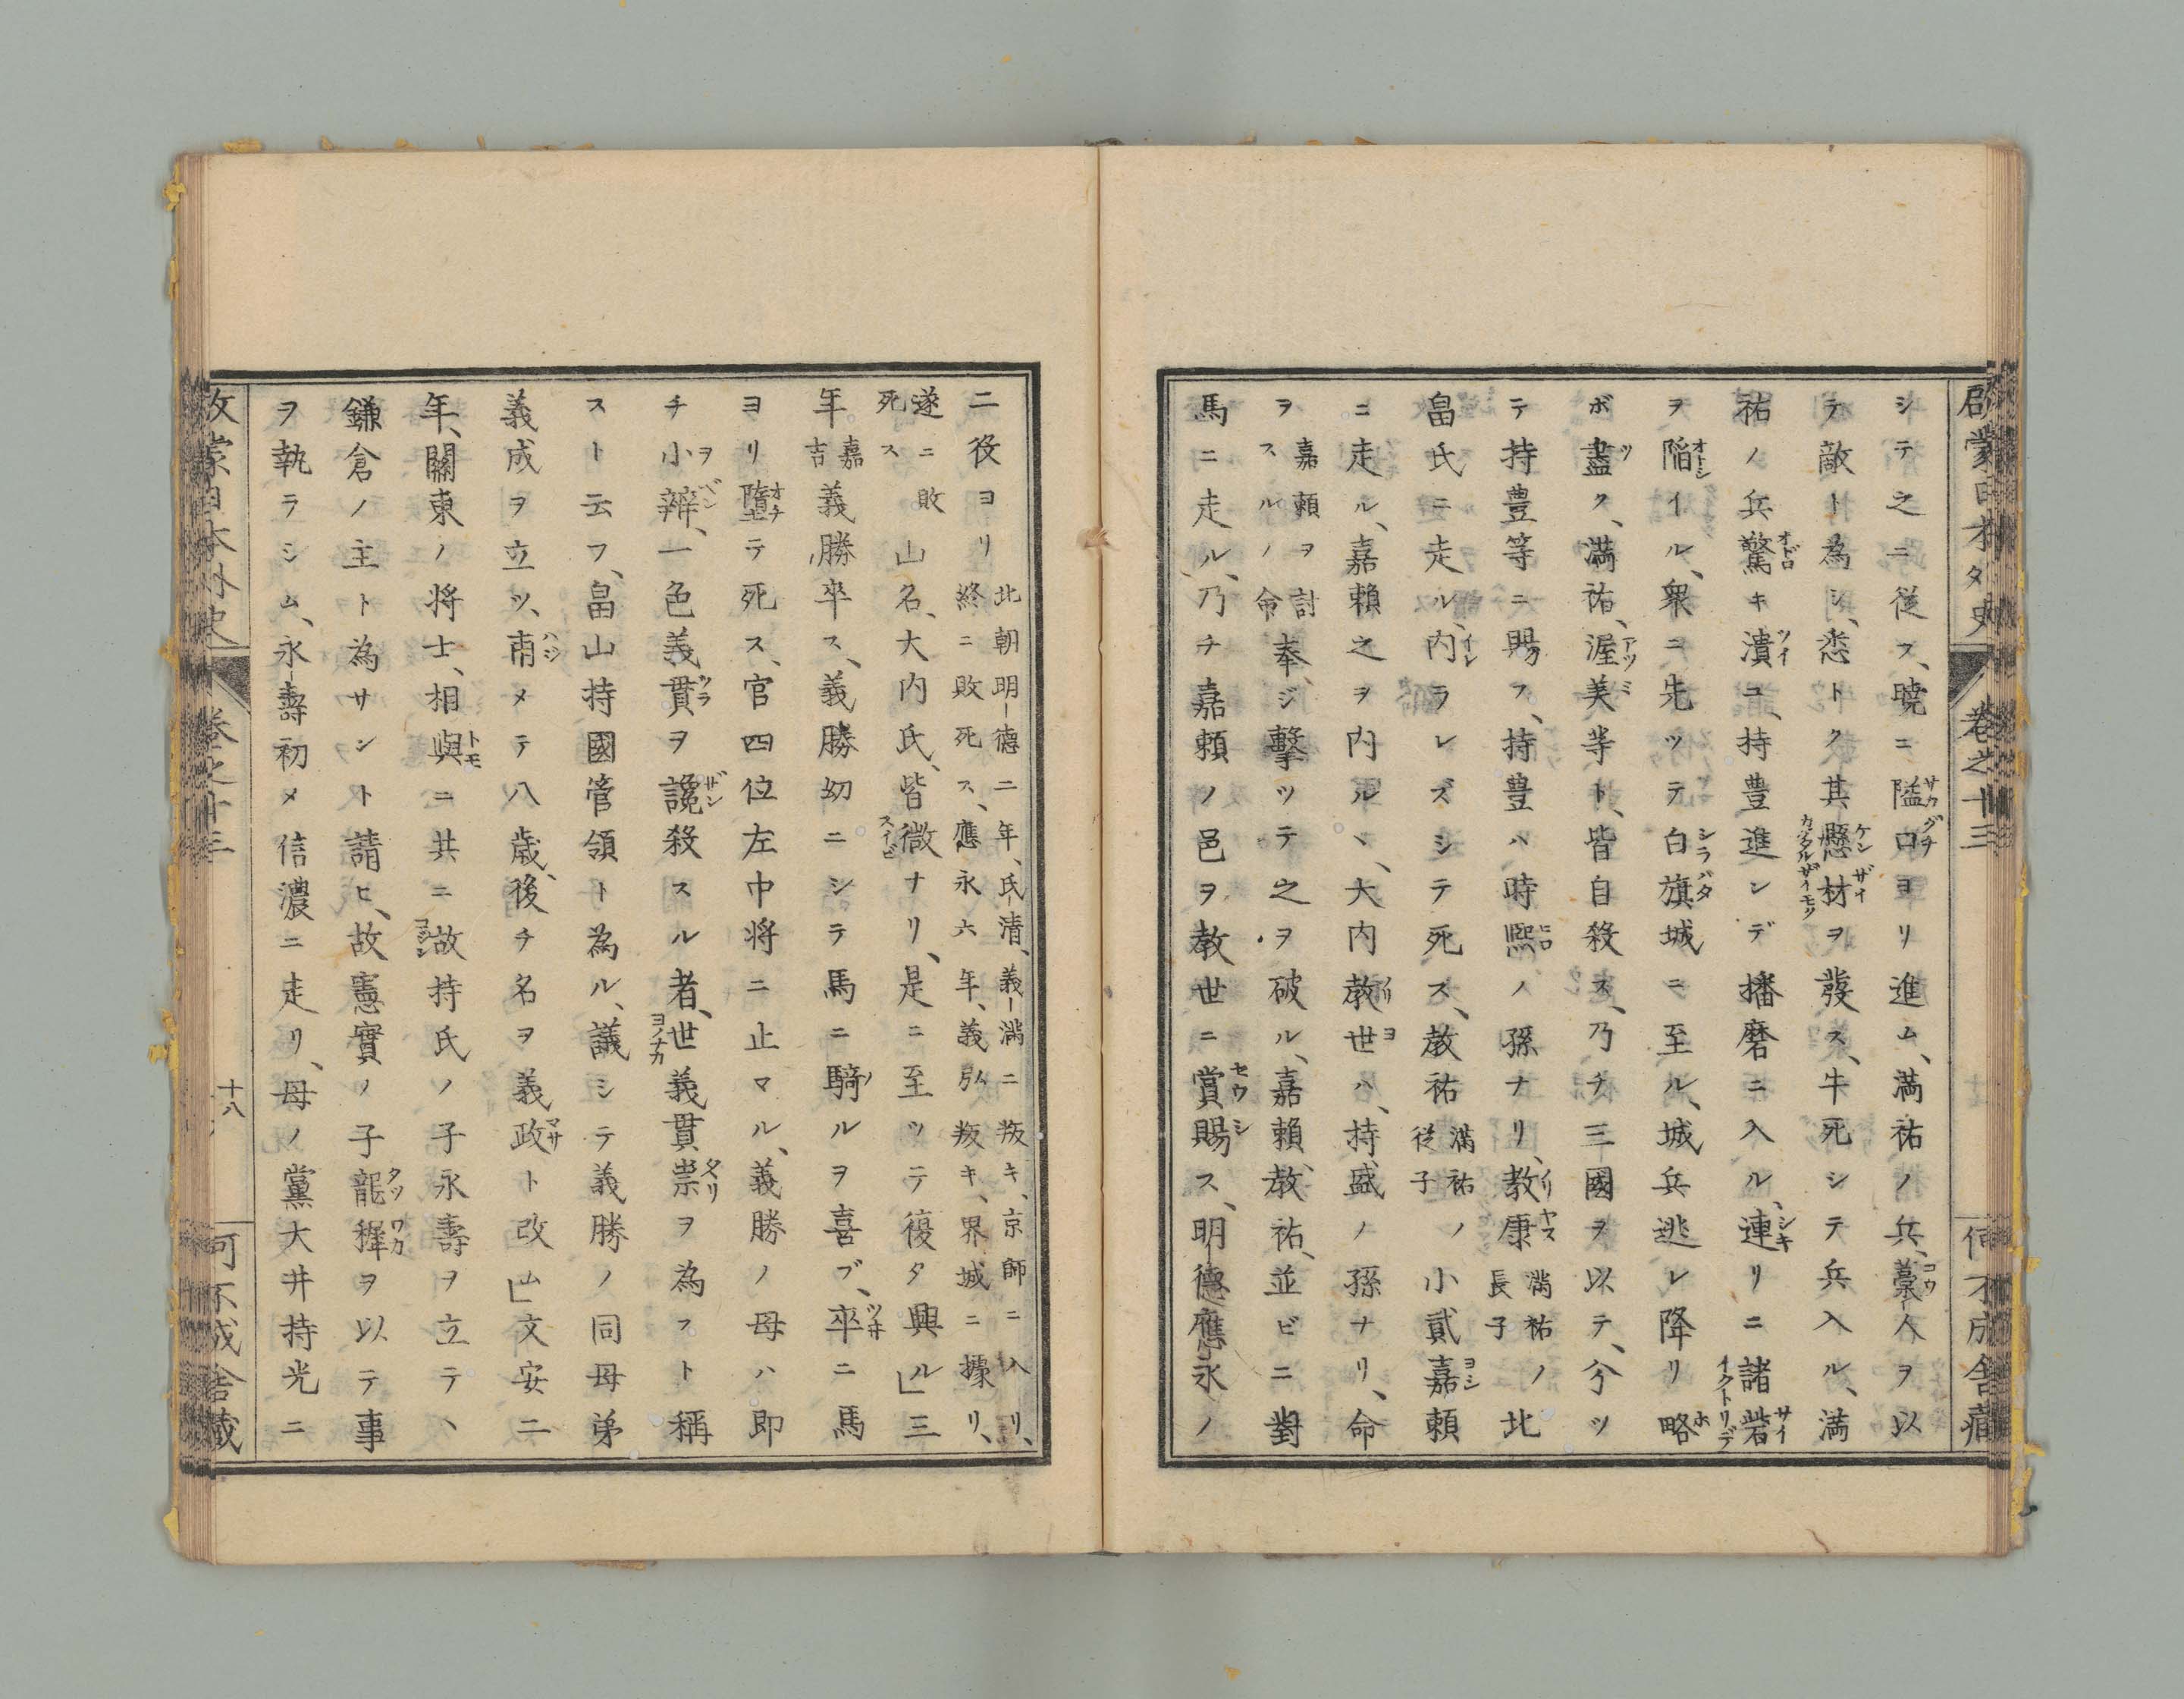 啓蒙日本外史 卷之十三 何不成舎蔵
シテ之ニ從フ、曉ニ隘口ヨリ進ム、満祐ノ兵、藁人ヲ以
テ敵ト為シ、悉トク其懸材ヲ發ス、牛死シテ兵入ル、満
祐ノ兵驚キ潰ユ、持豊進ンデ播磨ニ入ル、連リニ諸砦
ヲ陥イル、衆ニ先ツテ白旗城ニ至ル、城兵逃レ降リ略
ボ盡ク、満祐、渥美等ト、皆自殺ス、乃チ三國ヲ以テ、分ツ
テ持豊等ニ賜フ、持豊ハ時熈ノ孫ナリ、教康満祐ノ長子北
畠氏ニ走ル、内ラレズシテ死ス、教祐満祐ノ從子小貳嘉頼
ニ走ル、嘉頼之ヲ内ルヽ、大内教世ハ、持盛ノ孫ナリ、命
嘉頼ヲ討スルノ命ヲ奉ジ、擊ツテ之ヲ破ル、嘉頼、教祐、並ビニ對
馬ニ走ル、乃チ嘉頼ノ邑ヲ教世ニ賞賜ス、明德應永ノ
二役ヨリ北朝明德二年、氏清、義滿ニ叛キ、京師ニ入リ、終ニ敗死ス、應永六年、義弘叛キ、界城ニ據リ、
遂ニ敗死ス山名、大内氏、皆微ナリ、是ニ至ツテ復タ興ル」三
年嘉吉義勝卒ス、義勝幼ニシテ馬ニ騎ルヲ喜ブ、卒ニ馬
ヨリ墮テ死ス、官四位左中将ニ止マル、義勝ノ母ハ即
チ小辨、一色義貫ヲ讒殺スル者、世義貫祟ヲ為フト稱
スト云フ、畠山持國管領ト為ル、議シテ義勝ノ同母弟
義成ヲ立ツ、甫メテ八歳、後チ名ヲ義政ト改ム」文安二
年、關東ノ将士、相與ニ共ニ故持氏ノ子永壽ヲ立テヽ
鎌倉ノ主ト為サント請ヒ、故憲實ノ子龍穉ヲ以テ事
ヲ執ラシム、永壽初メ信濃ニ走リ、母ノ黨大井持光ニ
啓蒙日本外史 卷之十三 十八 何不成舎蔵